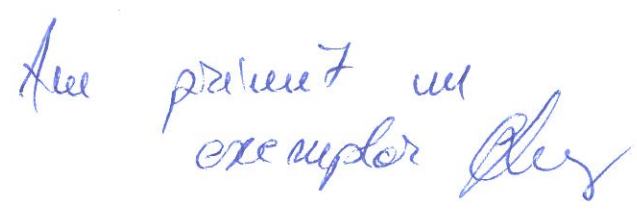 Am primit un
exemplar